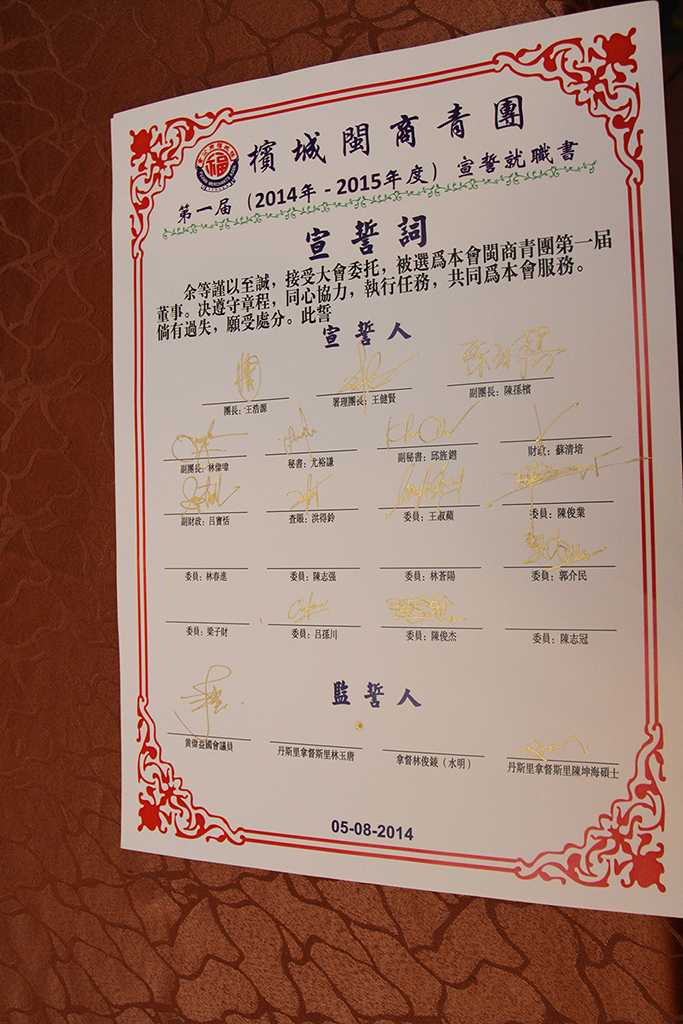 檳城閩商青團
第一届（2014年 - 2015年度）宣誓就職書
宣誓詞
余等謹以至誠，接受大會委托，被選爲本會閩商青團第一届
董事。决遵守章程，同心協力，執行任務，共同爲本會服務。
倘有過失，願受處分。此誓
宣誓人
團長：王浩源 署理團長：王健賢 副團長：陳孫檳
副團長：林偉暐 秘書：尤裕謙 副秘書：邱旌鎧 財政：蘇清培
副財政：呂寶恬 查賬：洪得鈴 委員：王淑蘋 委員：陳俊業
委員：林春進 委員：陳志强 委員：林蒼陽 委員：郭介民
委員：梁子財 委員：吕孫川 委員：陳俊杰 委員：陳志冠
監誓人
黄偉益國會議員 丹斯里拿督斯里林玉唐 拿督林俊錂（水明） 丹斯里拿督斯里陳坤海碩士
05-08-2014